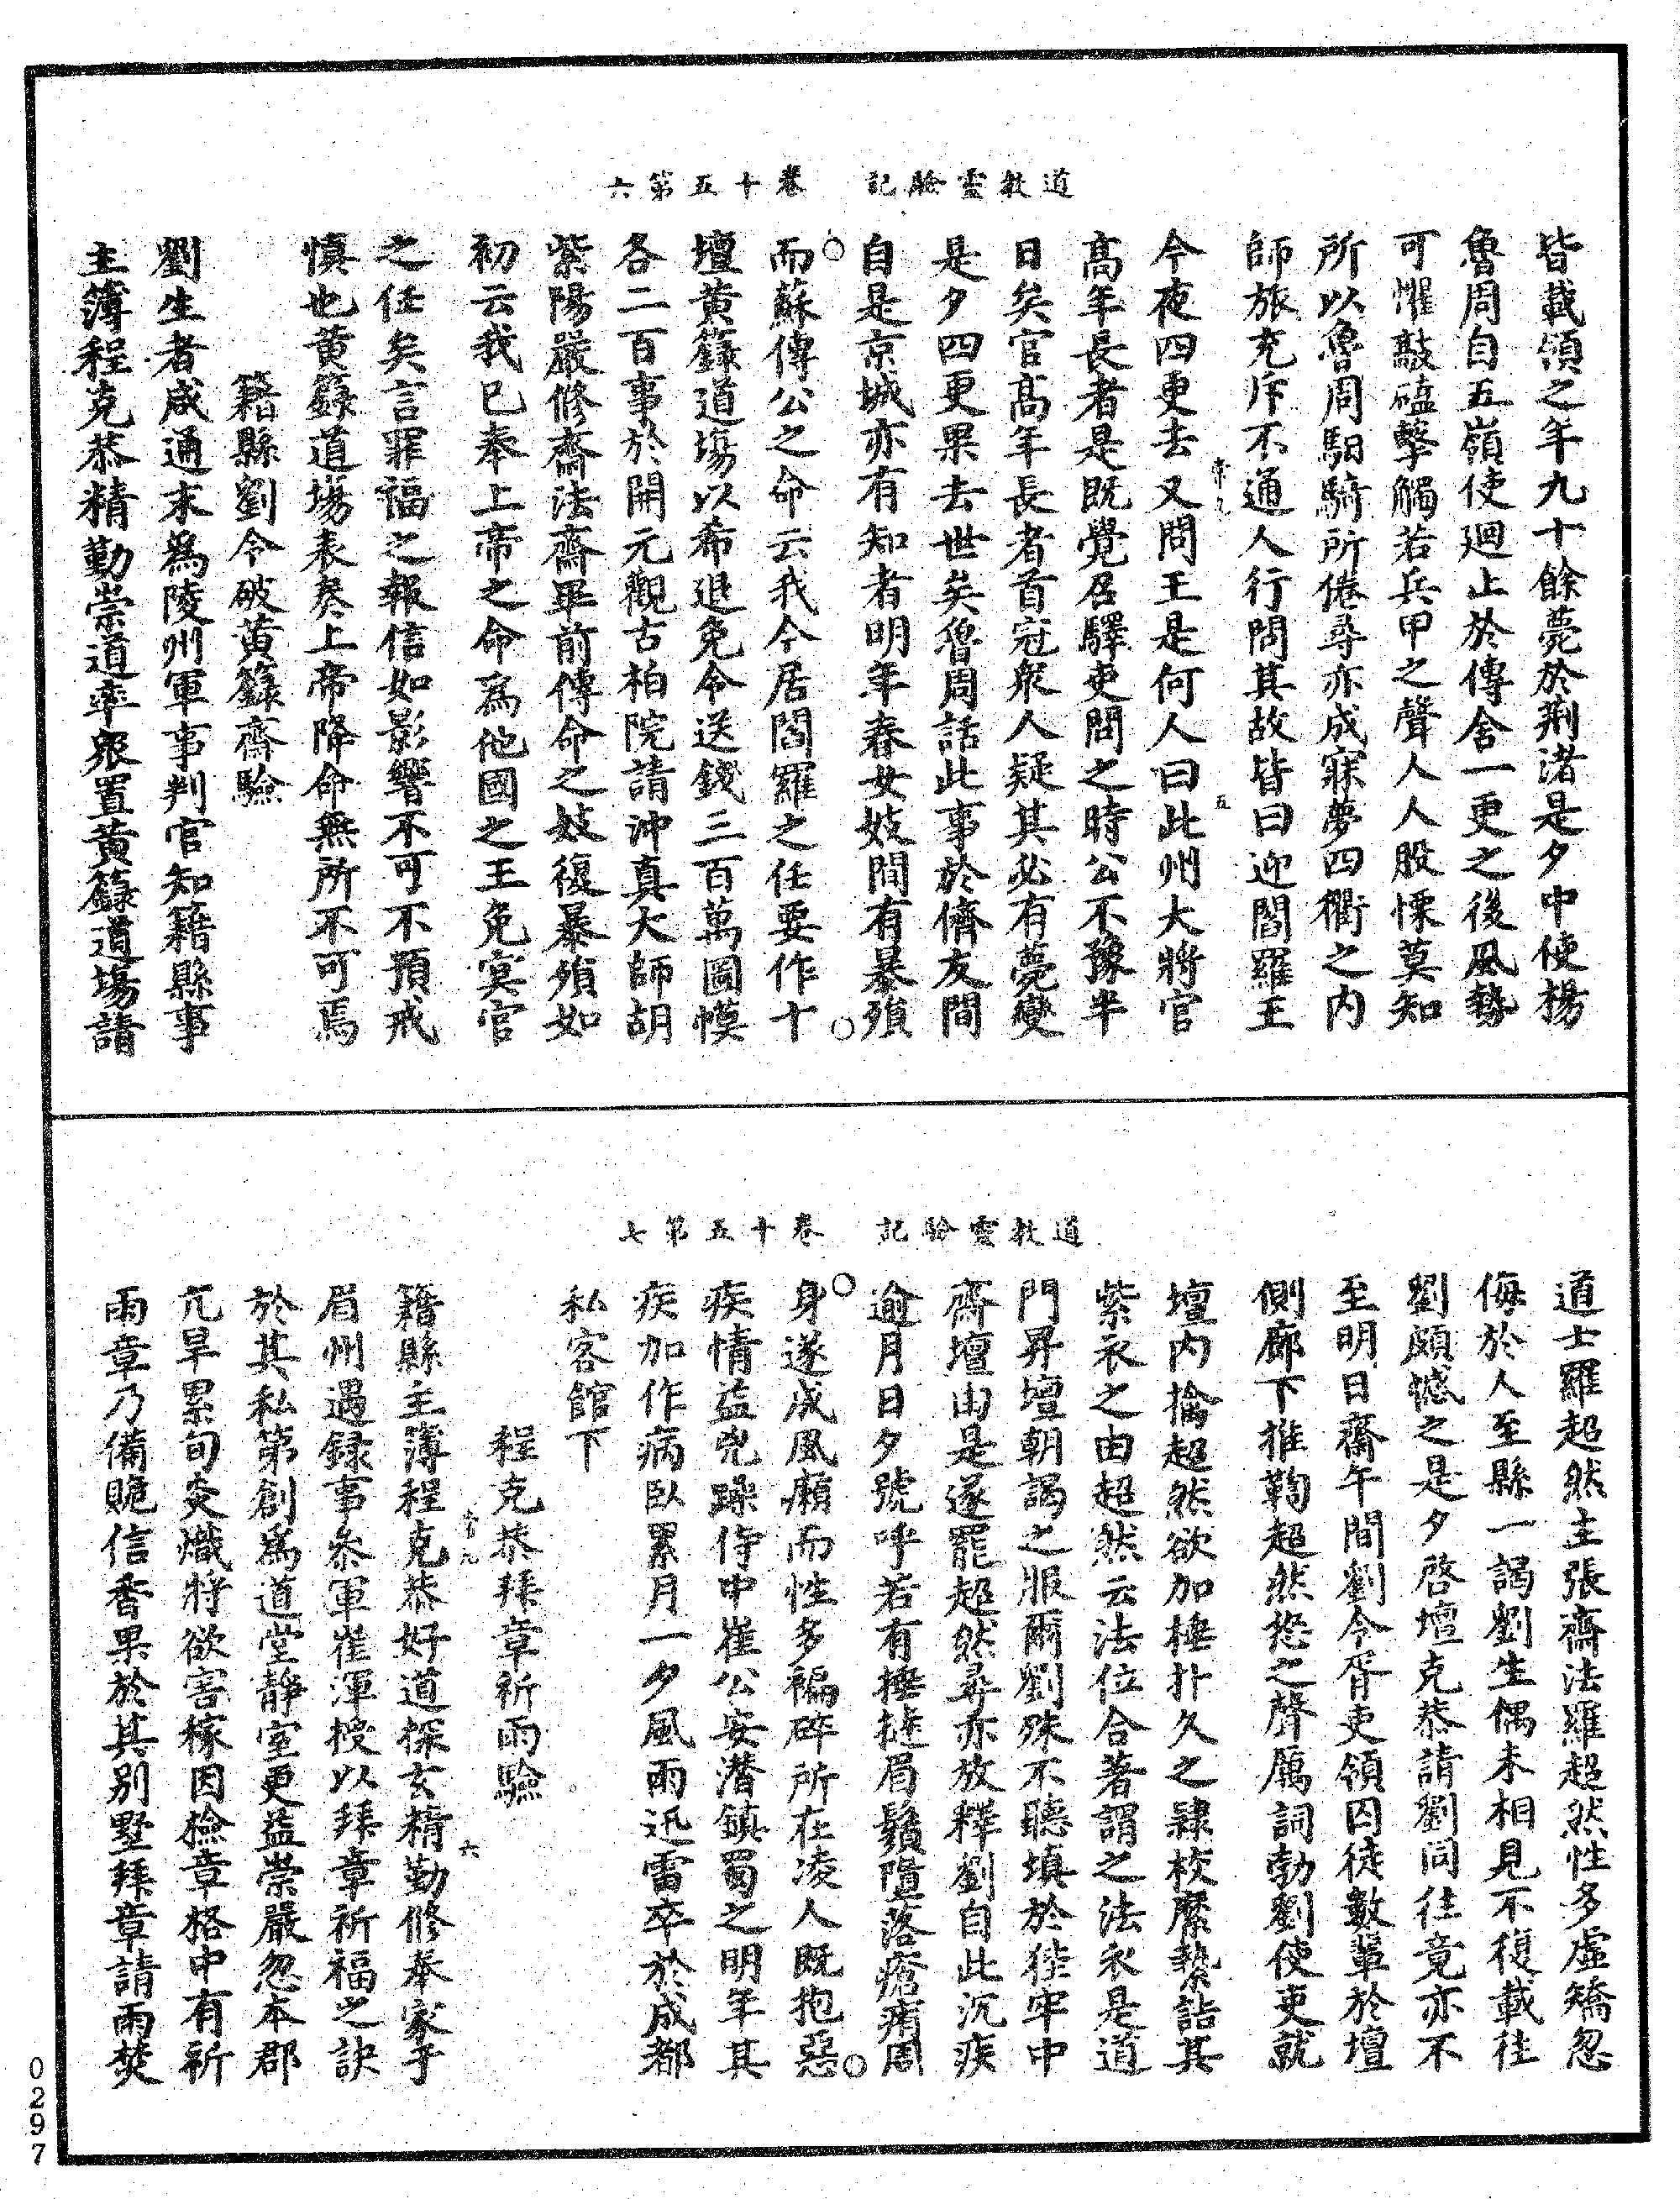 道教靈驗記　卷十五第六
皆載領之年九十餘薨於荆渚是夕中使楊
魯周自五嶺使廻止於傳舍一更之後風勢
可懼敲磕擊觸若兵甲之聲人人股慄莫知
所以魯周駔騎所倦尋亦成寐夢四衢之内
師旅充斥不通人行問其故皆曰迎閻羅王
今夜四更去又問王是何人曰此州大將官
五
高年長者是既覺召驛吏問之時公不豫半
日矣官高年長者首冠衆人疑其必有薨變
是夕四更果去世矣魯周話此事於儕友間
自是京城亦有知者明年春女妓間有暴殞
而蘇傳公之命云我今居閻羅之任要作十
壇黄籙道塲以希退免令送錢三百萬圖幞
各二百事於開元觀古柏院請冲真大師胡
紫陽嚴修齋法齋畢前傳命之妓復暴殞如
初云我已奉上帝之命爲他國之王免冥官
之任矣言罪福之報信如影響不可不預戒
慎也黄籙道塲表奏上帝降命無所不可焉
籍縣劉令破黄籙齋驗
劉生者咸通末爲陵州軍事判官知籍縣事
主簿程克恭精勤崇道率衆置黄籙道塲請
道教靈驗記　卷十五第七
道士羅超然主張齋法羅超然性多虛矯忽
侮於人至縣一謁劉生偶未相見不復載往
劉頗憾之是夕啓壇克恭請劉同往竟亦不
至明日齋午間劉令胥吏領囚徒數輩於壇
側廊下推鞫超然怒之聲厲詞勃劉使吏就
壇内擒超然欲加捶扑久之隷校縻縶詰其
紫衣之由超然云法位合著謂之法衣是道
門昇壇朝謁之服爾劉殊不聽填於狴牢中
齋壇由是遂罷超然尋亦放釋劉自此沉疾
逾月日夕號呼若有捶撻眉鬚墮落瘡痏周
身遂成風癩而性多褊碎所在凌人既抱惡
疾情益兇躁侍中崔公安潜鎮蜀之明年其
疾加作病臥累月一夕風雨迅雷卒於成都
私客館下
程克恭拜章祈雨驗
籍縣主薄程克恭好道探玄精勤修奉家于
六
眉州遇録事叅軍崔渾授以拜章祈福之訣
於其私第創爲道堂靜室更益崇嚴忽本郡
亢旱累旬炎熾將欲害稼因檢章格中有祈
雨章乃備贍信香果於其别墅拜章請雨焚
0297